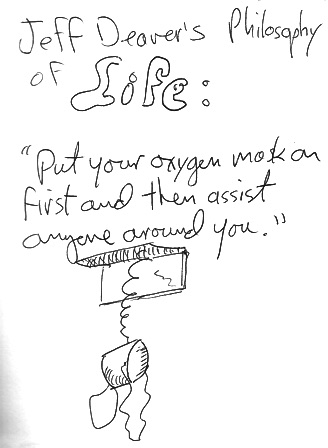 Jeff Deaver's Philosophy
of Life:
"Put your oxygen mask on
first and then assist
anyone around you."